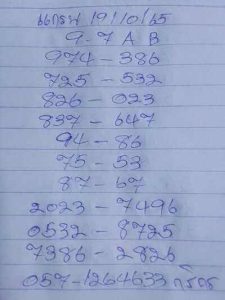 19/10/65
9-7 A B
974-386
725-532
826-023
837-647
94-86
75-53
87-67
2023-7496
0532-8725
7386-2826
057-1264633